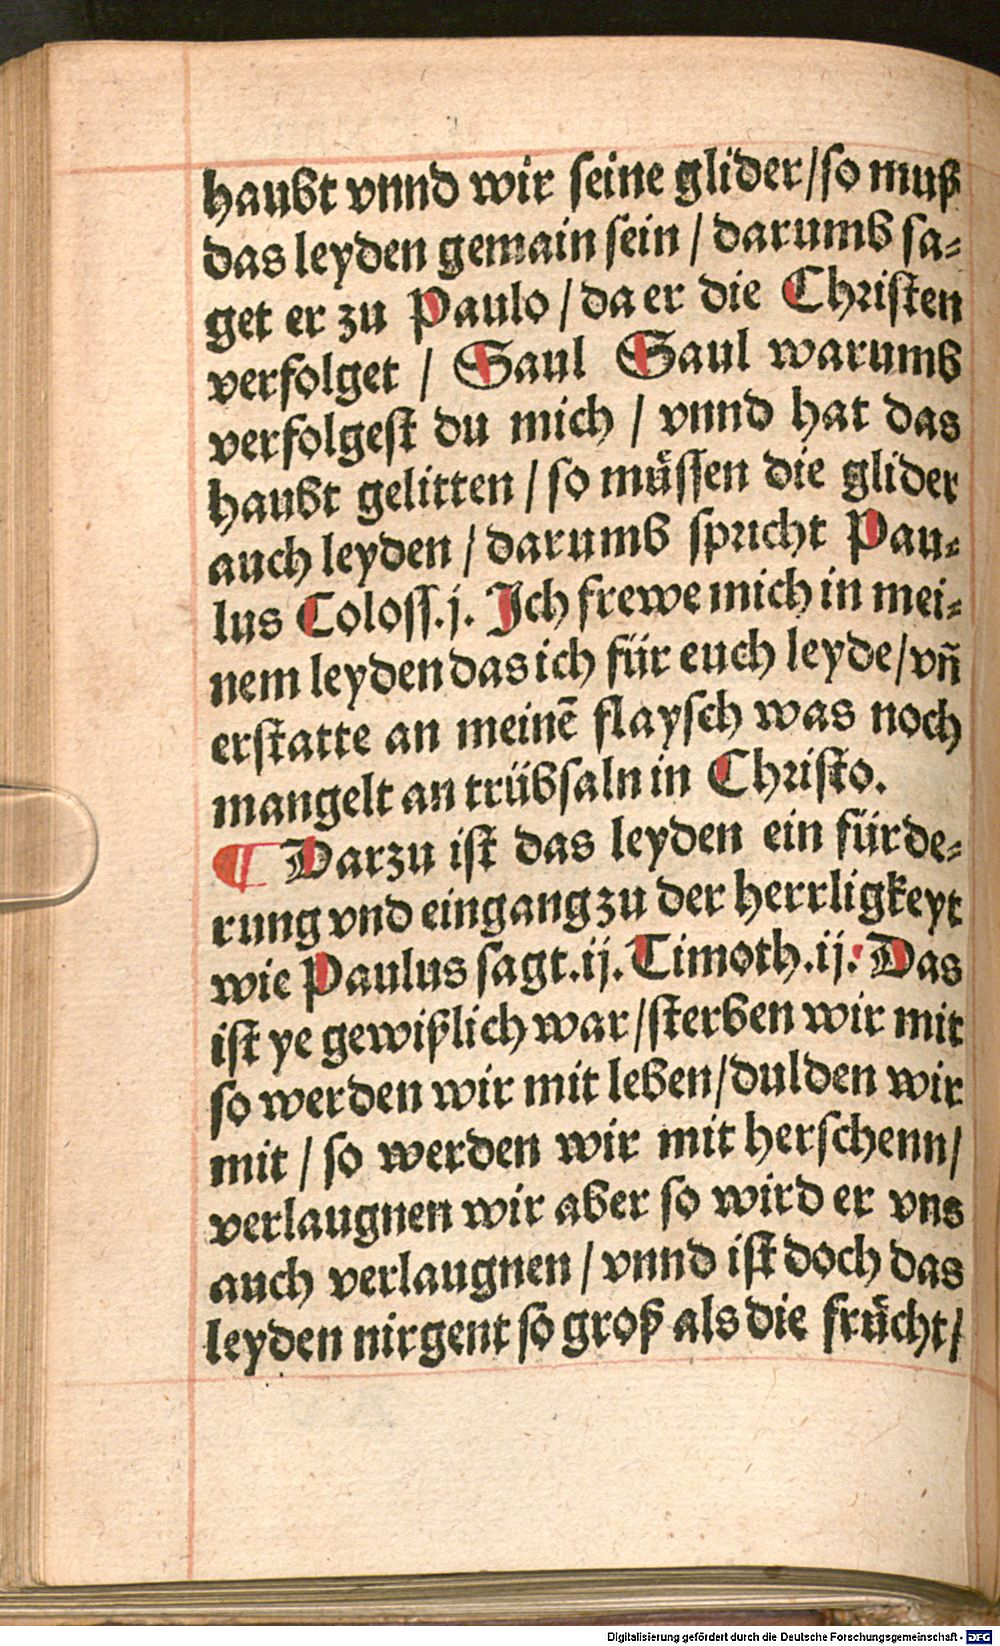 haubt vnnd wir seine glider/so muß
das leyden gemain sein / darumb sa⸗
get er zu Paulo / da er die Christen
verfolget / Saul Saul warumb
verfolgest du mich / vnnd hat das
haubt gelitten / so müssen die glider
auch leyden / darumb spricht Pau⸗
lus Coloss.j. Ich frewe mich in mei⸗
nem leyden das ich für euch leyde/vñ
erstatte an meinē flaysch was noch
mangelt an trübsaln in Christo.
¶ Darzu ist das leyden ein fürde⸗
rung vnd eingang zu der herrligkeyt
wie Paulus sagt.ij.Timoth.ij. Das
ist ye gewißlich war/sterben wir mit
so werden wir mit leben/dulden wir
mit / so werden wir mit herschenn/
verlaugnen wir aber so wird er vns
auch verlaugnen / vnnd ist doch das
leyden nirgent so groß als die frücht/
Digitalisierung gefördert durch die Deutsche Forschungsgemeinschaft - DFG